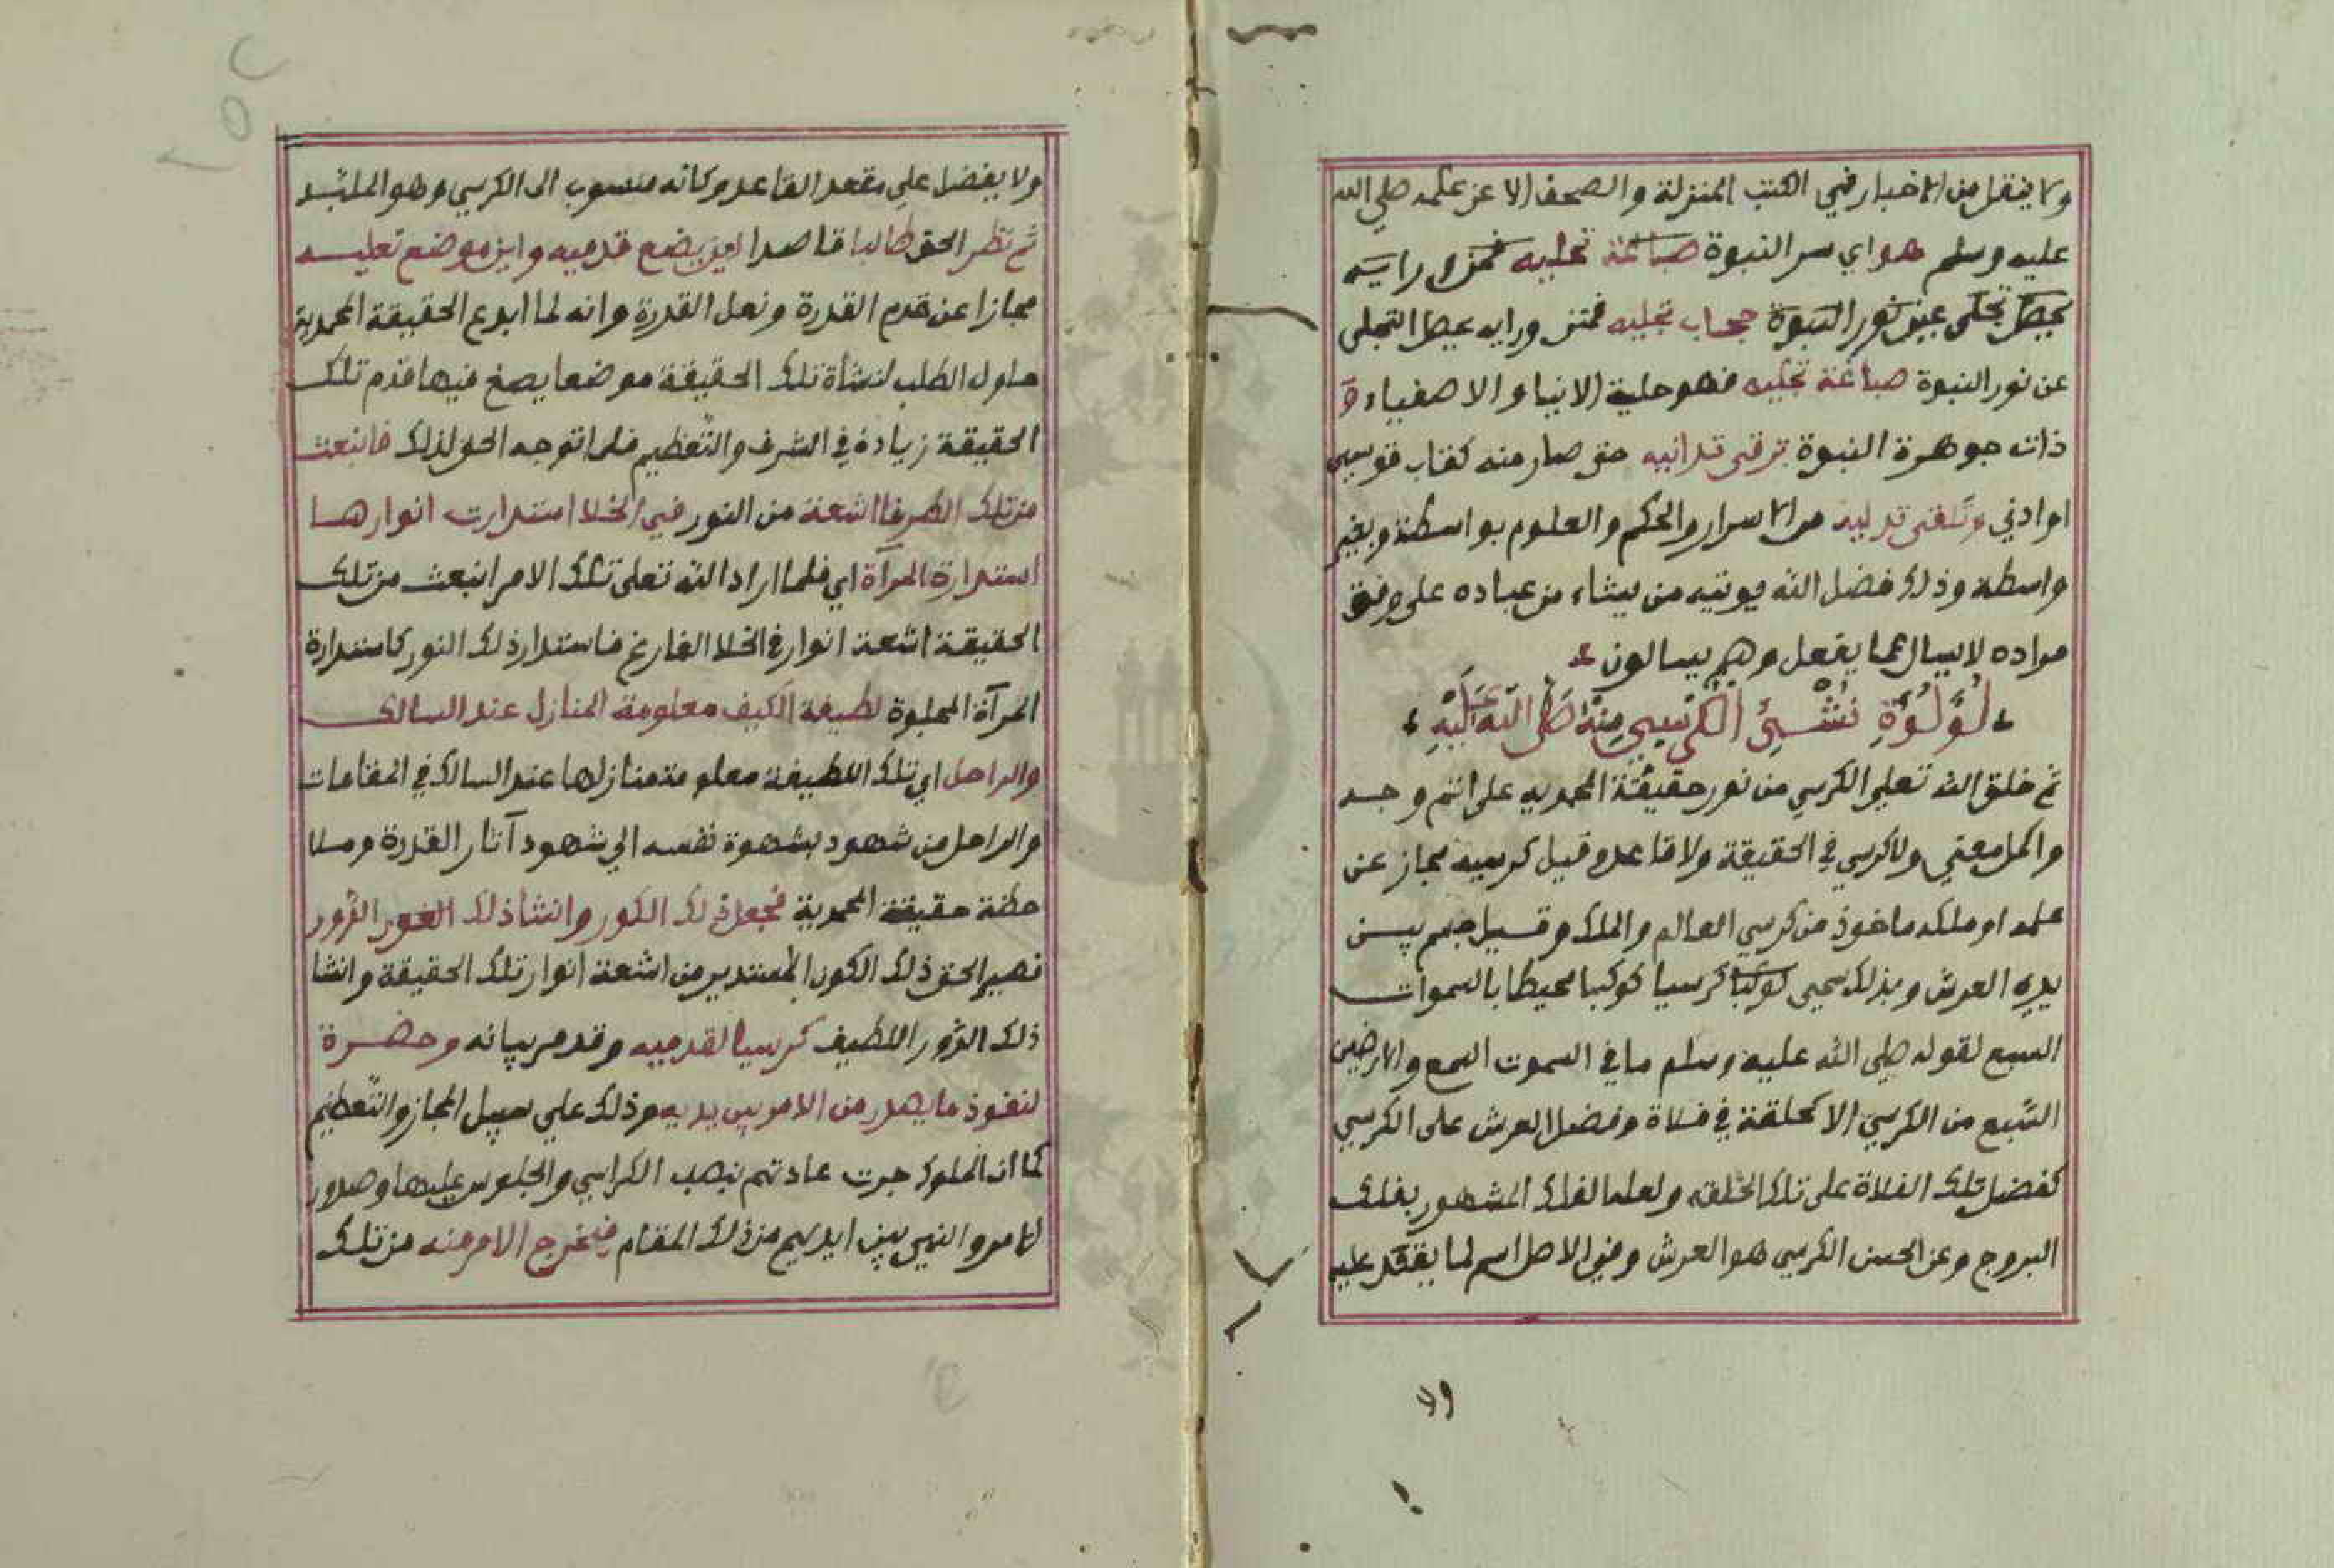 ولا ينقل من الاخبار في الكتب المنزلة والصحف الا عن علمه صلي الله
عليه وسلم هو اي سر النبوة صباغة تجليه فمن ورايه
يحيط تجلى عين نور النبوة حجاب تجليه فمن ورايه يحيط التجلى
عن نور النبوة صباغة تجليه فهو حلية الانبيا والاصفياء و
ذات جوهرة النبوة ترقى تدانيه حتى صار منه كقاب قوسين
او ادني وتلقى تدليه من الاسرار والحكم والعلوم بواسطة وبغير
واسطه وذلك فضل الله يوتيه من يشاء من عباده على وفق
مراده لا يسال عما يفعل وهم يسالون
لؤلؤة نشئ الكرسي منه صلى الله عليه
ثم خلق الله تعلى الكرسي من نور حقيقته المحمديه على اتم وجد
واكمل معني ولا كرسي في الحقيقة ولا قاعد وقيل كرسيه مجاز عن
علمه او ملكه ماخوذ من كرسي العالم والملك وقيل جسم بين
يدي العرش وبذلك سمي كرسيا كوكبا محيطا بالسموات
السبع لقوله صلى الله عليه وسلم ما في السموت السبع والارضين
السبع من الكرسي الا كحلقة في فلاة وفضل العرش على الكرسي
كفضل تلك الفلاة على تلك الحلقه ولعله الفلك المشهور بفلك
البروج وعن الحسن الكرسي هو العرش وفي الاصل اسم لما يقعد عليه
٧٩
ولا يفضل على مقعد القاعد وكانه منسوب الى الكرسي وهو الملبد
ثم نظر الحق طالبا قاصدا اين يضع قدميه واين موضع نعليه
مجازا عن قدم القدرة ونعل القدرة وانه لما ابدع الحقيقة المحمدية
حاول الطلب لنشأة تلك الحقيقة موضعا يضع فيها قدم تلك
الحقيقة زيادة في الشرف والتعظيم فلما توجه الحق لذلك فانبعث
من تلك الطرفا اشعة من النور في الخلا استدارت انوارها
استدارة المرآة اي فلما اراد الله تعلى تلك الامر انبعث من تلك
الحقيقة اشعة انوار في الخلا الفارغ فاستدار ذلك النور كاستدارة
المرآة المجلوة لطيفة الكيف معلومة المنازل عند السالك
والراحل اي تلك اللطيفة معلومة منازلها عند السالك في المقامات
والراحل من شهود بشهوة نفسه الي شهود آثار القدرة وملا
حظة حقيقة المحمدية فجعل ذلك الكور وانشا ذلك الغور الزور
فصير الحق ذلك الكون المستدير من اشعة انوار تلك الحقيقة وانشا
ذلك الزور اللطيف كرسيا لقدميه وقد مر بيانه وحضرة
لنفوذ ما يصدر من الامر بين يديه وذلك علي سبيل المجاز والتعظيم
كما ان الملوك جرت عادتهم نصب الكراسي والجلوس عليها وصدور
الامر والنهي بين ايديهم من ذلك المقام فيخرج الامر منه من تلك